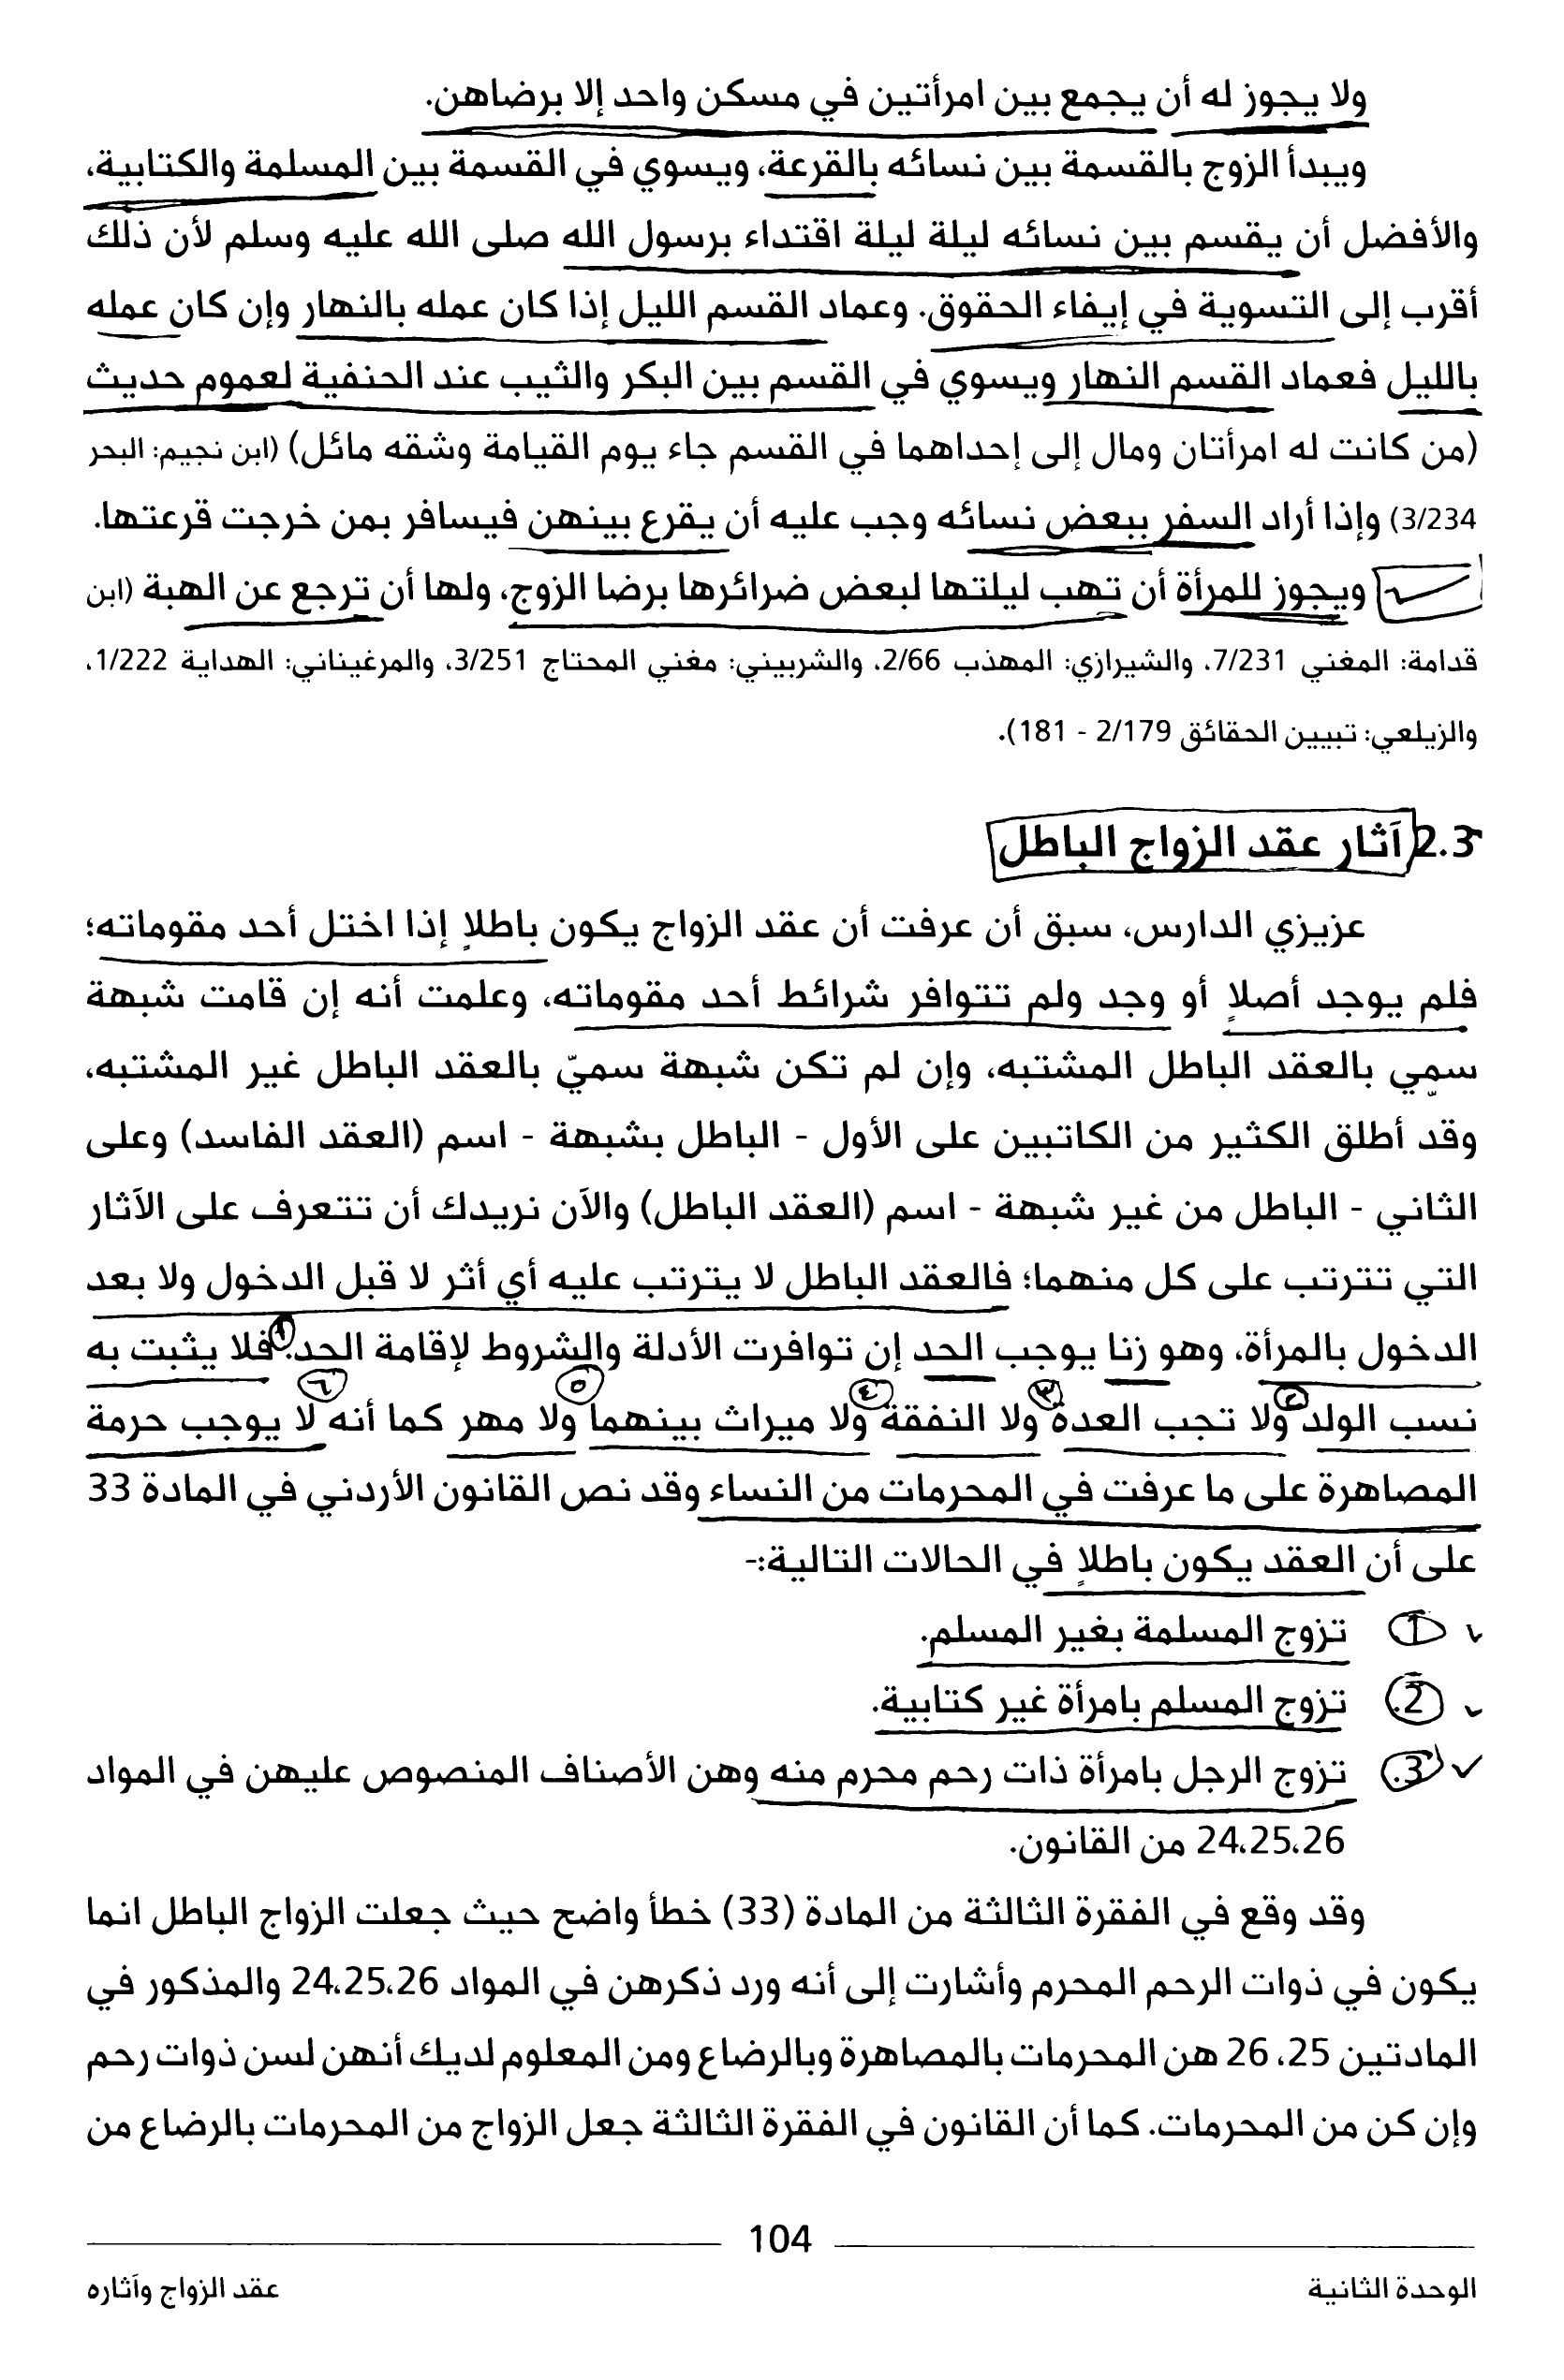 ولا يجوز له أن يجمع بين امرأتين في مسكن واحد إلا برضاهن.
ويبدأ الزوج بالقسمة بين نسائه بالقرعة، ويسوي في القسمة بين المسلمة والكتابية،
والأفضل أن يقسم بين نسائه ليلة ليلة اقتداء برسول الله صلى الله عليه وسلم لأن ذلك
أقرب إلى التسوية في إيفاء الحقوق. وعماد القسم الليل إذا كان عمله بالنهار وإن كان عمله
بالليل فعماد القسم النهار ويسوي في القسم بين البكر والثيب عند الحنفية لعموم حديث
(من كانت له امرأتان ومال إلى إحداهما في القسم جاء يوم القيامة وشقه مائل) (ابن نجيم: البحر
3/234) وإذا أراد السفر ببعض نسائه وجب عليه أن يقرع بينهن فيسافر بمن خرجت قرعتها.
ويجوز للمرأة أن تهب ليلتها لبعض ضرائرها برضا الزوج، ولها أن ترجع عن الهبة (ابن
قدامة: المغني 7/231، والشيرازي: المهذب 2/66، والشربيني: مغني المحتاج 3/251، والمرغيناني: الهداية 1/222،
والزيلعي: تبيين الحقائق 2/179 - 181).
2.3 آثار عقد الزواج الباطل
عزيزي الدارس، سبق أن عرفت أن عقد الزواج يكون باطلاٍ إذا اختل أحد مقوماته؛
فلم يوجد أصلاٍ أو وجد ولم تتوافر شرائط أحد مقوماته، وعلمت أنه إن قامت شبهة
سمّي بالعقد الباطل المشتبه، وإن لم تكن شبهة سميّ بالعقد الباطل غير المشتبه،
وقد أطلق الكثير من الكاتبين على الأول - الباطل بشبهة - اسم (العقد الفاسد) وعلى
الثاني - الباطل من غير شبهة - اسم (العقد الباطل) والآن نريدك أن تتعرف على الآثار
التي تترتب على كل منهما؛ فالعقد الباطل لا يترتب عليه أي أثر لا قبل الدخول ولا بعد
الدخول بالمرأة، وهو زنا يوجب الحد إن توافرت الأدلة والشروط لإقامة الحد. ١ فلا يثبت به
نسب الولد ٢ ولا تجب العدة ٣ ولا النفقة ٤ ولا ميراث بينهما ٥ ولا مهر كما أنه ٦ لا يوجب حرمة
المصاهرة على ما عرفت في المحرمات من النساء وقد نص القانون الأردني في المادة 33
على أن العقد يكون باطلاٍ في الحالات التالية:-
1. تزوج المسلمة بغير المسلم.
2. تزوج المسلم بامرأة غير كتابية.
3. تزوج الرجل بامرأة ذات رحم محرم منه وهن الأصناف المنصوص عليهن في المواد
24،25،26 من القانون.
وقد وقع في الفقرة الثالثة من المادة (33) خطأ واضح حيث جعلت الزواج الباطل انما
يكون في ذوات الرحم المحرم وأشارت إلى أنه ورد ذكرهن في المواد 24،25،26 والمذكور في
المادتين 25، 26 هن المحرمات بالمصاهرة وبالرضاع ومن المعلوم لديك أنهن لسن ذوات رحم
وإن كن من المحرمات. كما أن القانون في الفقرة الثالثة جعل الزواج من المحرمات بالرضاع من
104
الوحدة الثانية
عقد الزواج وآثاره